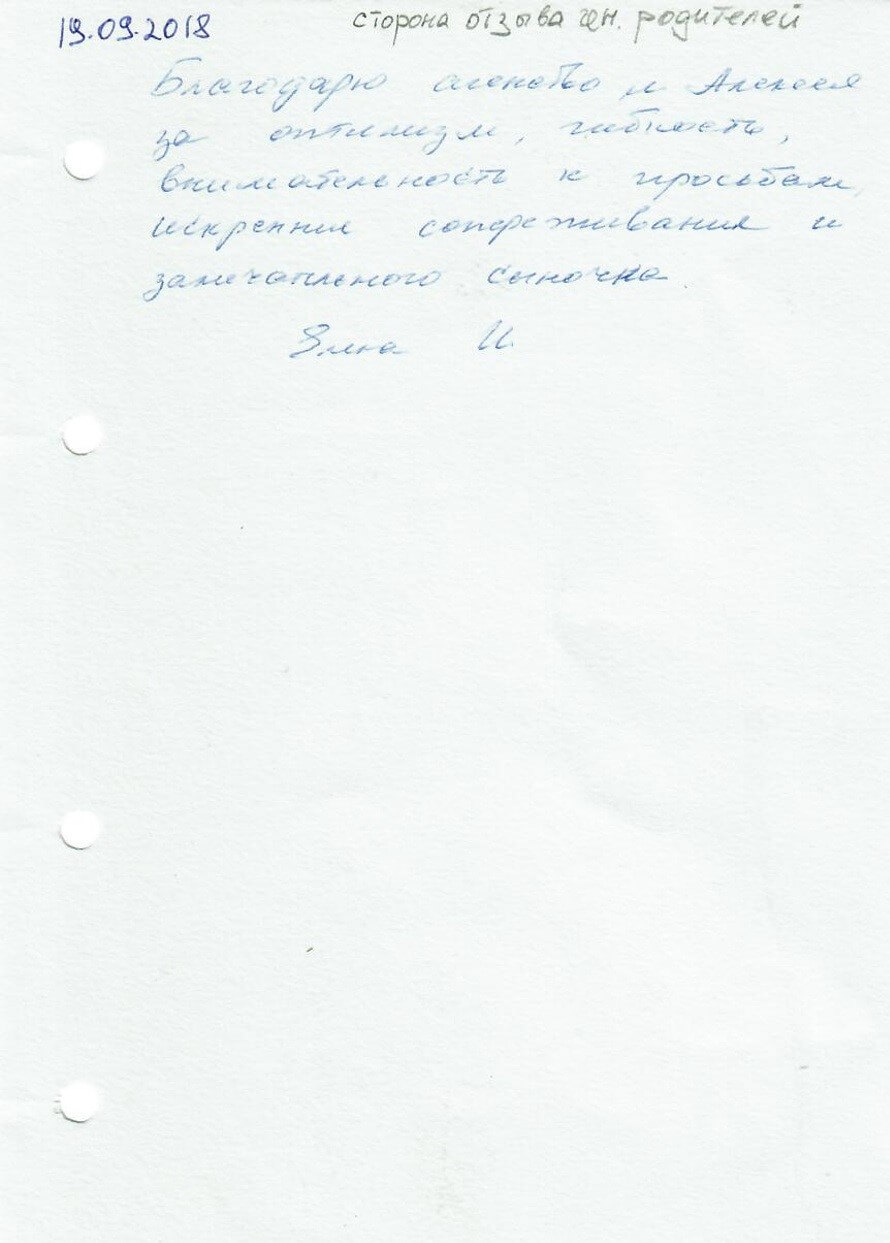 19.09.2018
сторона отзыва ген. родителей
Благодарю агенство и Алексея
за оптимизм, гибкость,
внимательность к просьбам,
искренния сопереживания и
замечательного сыночка.
Элена И.